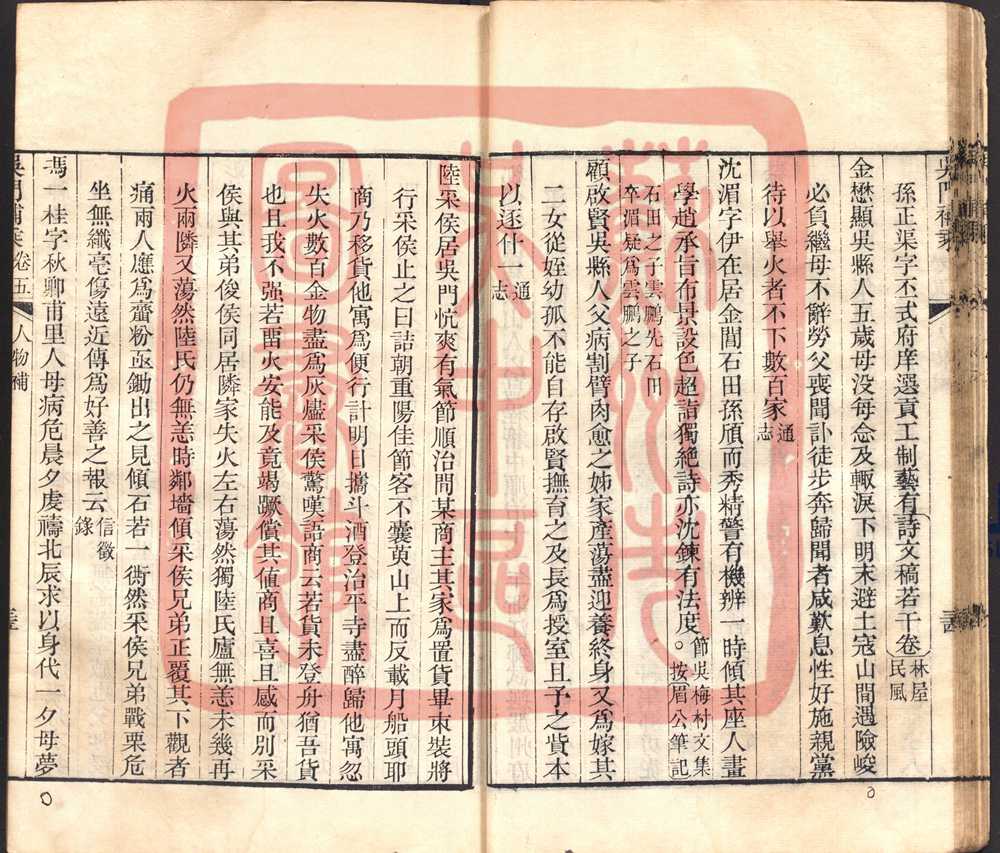 孫正渠字丕式府庠選貢工制藝有詩文稿若干卷林屋民風
金懋顯吳縣人五歲母没每念及輙淚下明末避土寇山間遇險峻
必負繼母不辭勞父喪聞訃徒步奔歸聞者咸歎息性好施親黨
待以舉火者不下數百家通志
沈湄字伊在居金閶石田孫頎而秀精警有機辨一時傾其座人畫
學趙承旨布景設色超詣獨絶詩亦沈鍊有法度。節吳梅村文集按眉公筆記
石田之子雲鵬先石田卒湄疑爲雲鵬之子
顧啟賢吳縣人父病割臂肉愈之姊家產蕩盡迎養終身又爲嫁其
二女從姪幼孤不能自存啟賢撫育之及長爲授室且予之貲本
以逐什一通志
陸采侯居吳門忼爽有氣節順治間某商主其家爲置貨畢束裝將
行采侯止之曰詰朝重陽佳節客不囊萸山上而反載月船頭耶
商乃移貨他寓爲便行計明日攜斗酒登治平寺盡醉歸他寓忽
失火數百金物盡爲灰燼采侯驚嘆語商云若貨未登舟猶吾貨
也且我不强若畱火安能及竟竭蹶償其値商且喜且感而別采
侯與其弟俊侯同居隣家失火左右蕩然獨陸氏廬無恙未幾再
火兩隣又蕩然陸氏仍無恙時鄰墻傾采侯兄弟正覆其下觀者
痛兩人應爲虀粉亟鋤出之見傾石若一衖然采侯兄弟戰栗危
坐無纖亳傷遠近傳爲好善之報云信徵錄
馮一桂字秋卿甫里人母病危晨夕虔禱北辰求以身代一夕母夢
吳門補乘卷五 人物補